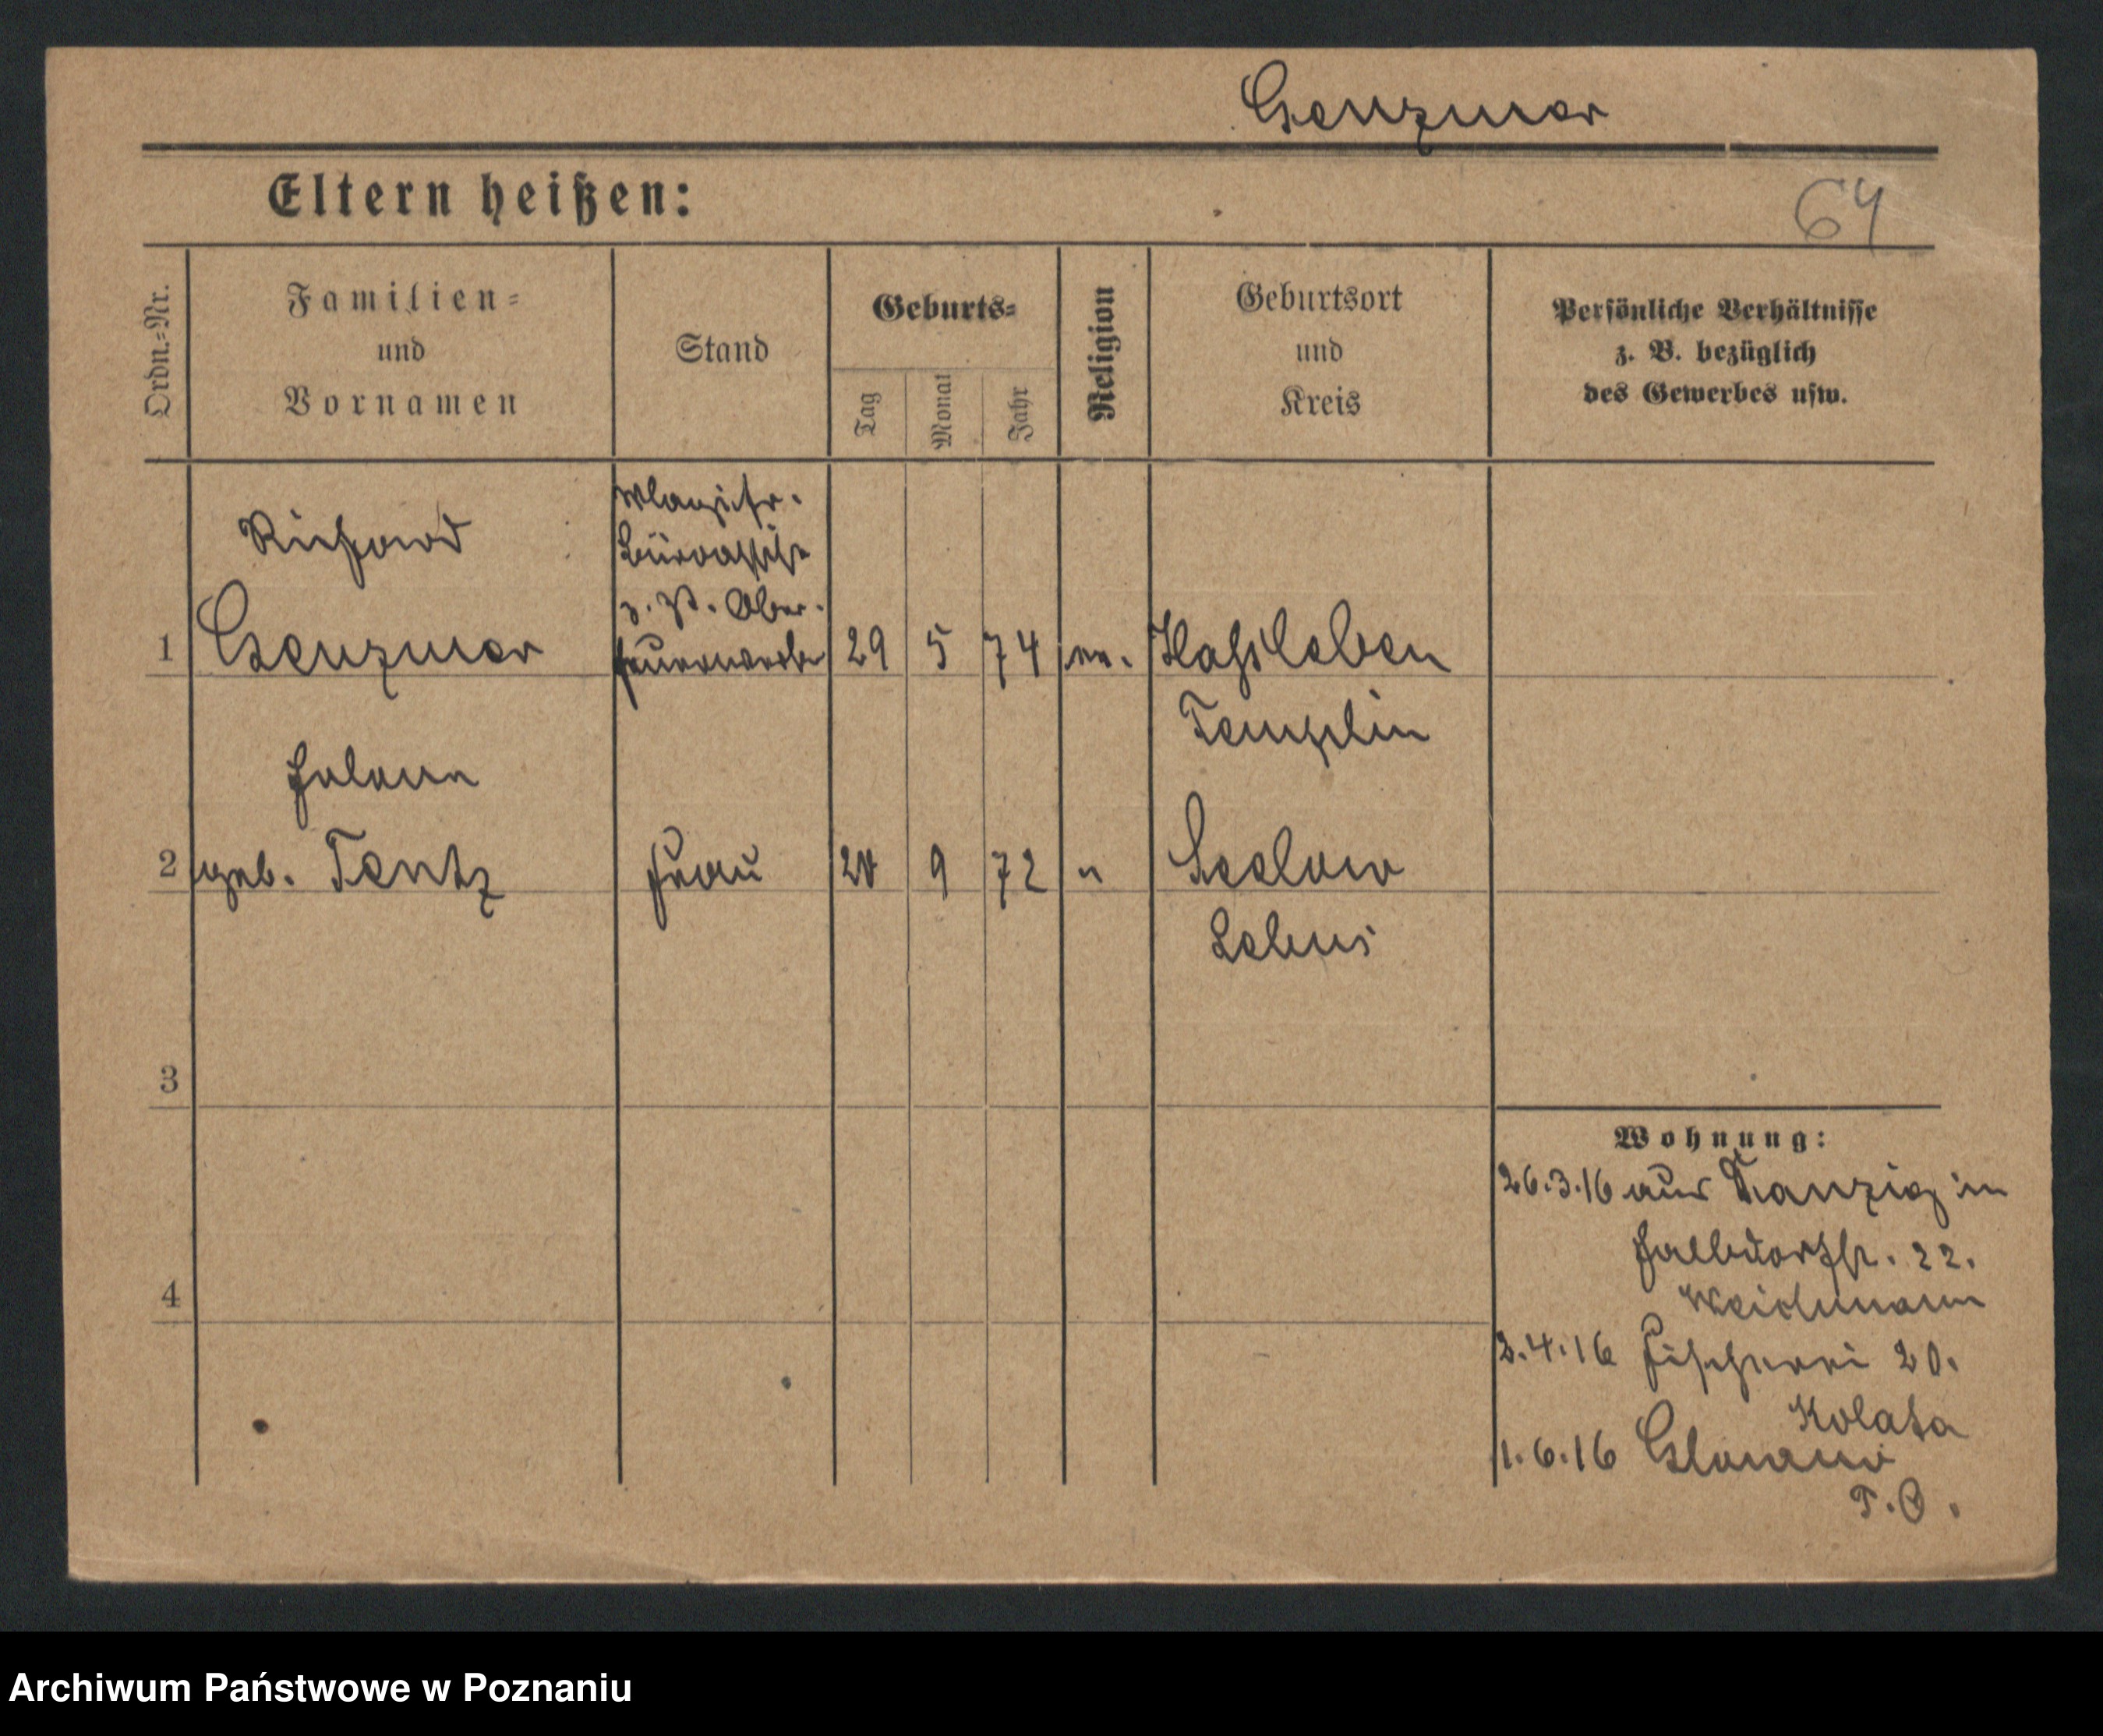 Genzmer
Eltern heißen:
64
Ordn.=Nr.
Familien=
und
Vornamen
Stand
Geburts=
Tag
Monat
Jahr
Religion
Geburtsort
und
Kreis
Persönliche Verhältnisse
z. B. bezüglich
des Gewerbes usw.
Richard
Magistr.
Büroassist
z. Zt. Ober-
1 Genzmer feuerwerker 29 5 74 ev. Hassleben
Templin
Helene
2 geb. Tentz Frau 20 9 72 " Seelow
Lebus
3
Wohnung:
26.3.16 aus Danzig in
Halbdorfstr. 22.
Weichmann
4
2.4.16 Fischerei 20.
Kolata
1.6.16 Glowno
P.O.
Archiwum Państwowe w Poznaniu